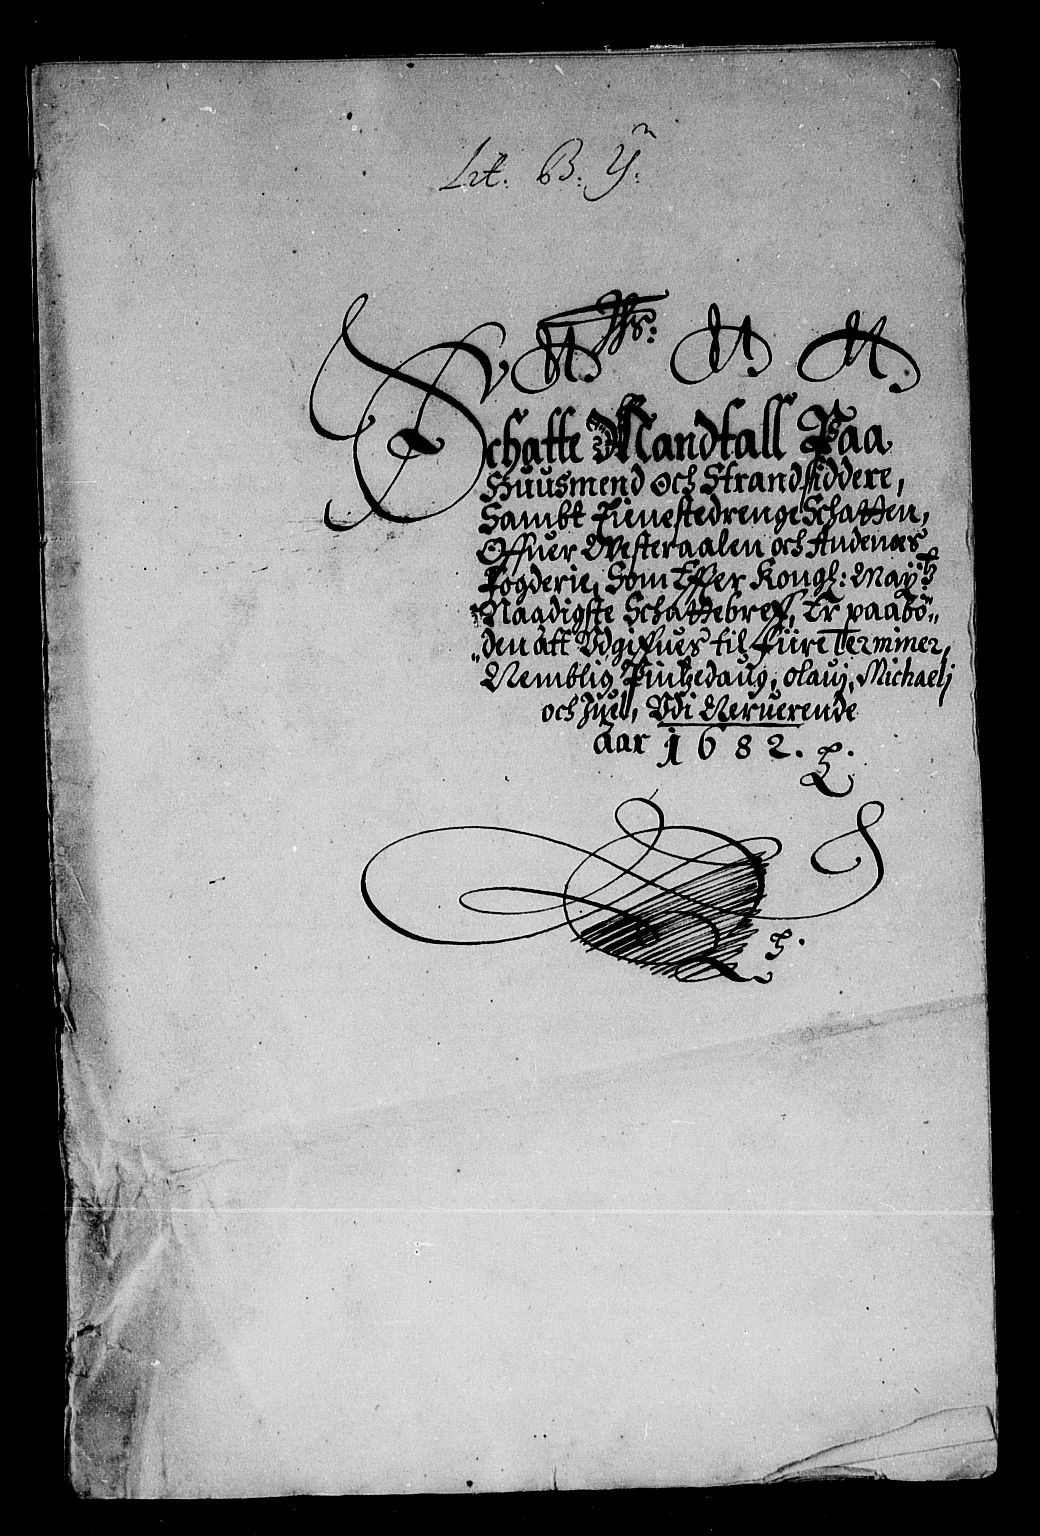 Lit. B. ÿ:
Jhs:
N. N. N.
Schatte Mandtall Paa
Huusmend och Strandsiddere,
Sambt Tienestedrenge Schatten,
Offuer Westeraalen och Andenæs
Fogderie, Som Effter Kongl: May:tz
Naadigste Schattebreff, Er paabö„
„den att Udgiffues til fiire Terminer,
Nemblig Pintzedaug, Olauj, Michaelj
och Juel, Udi Nerverende
Aar 1682.